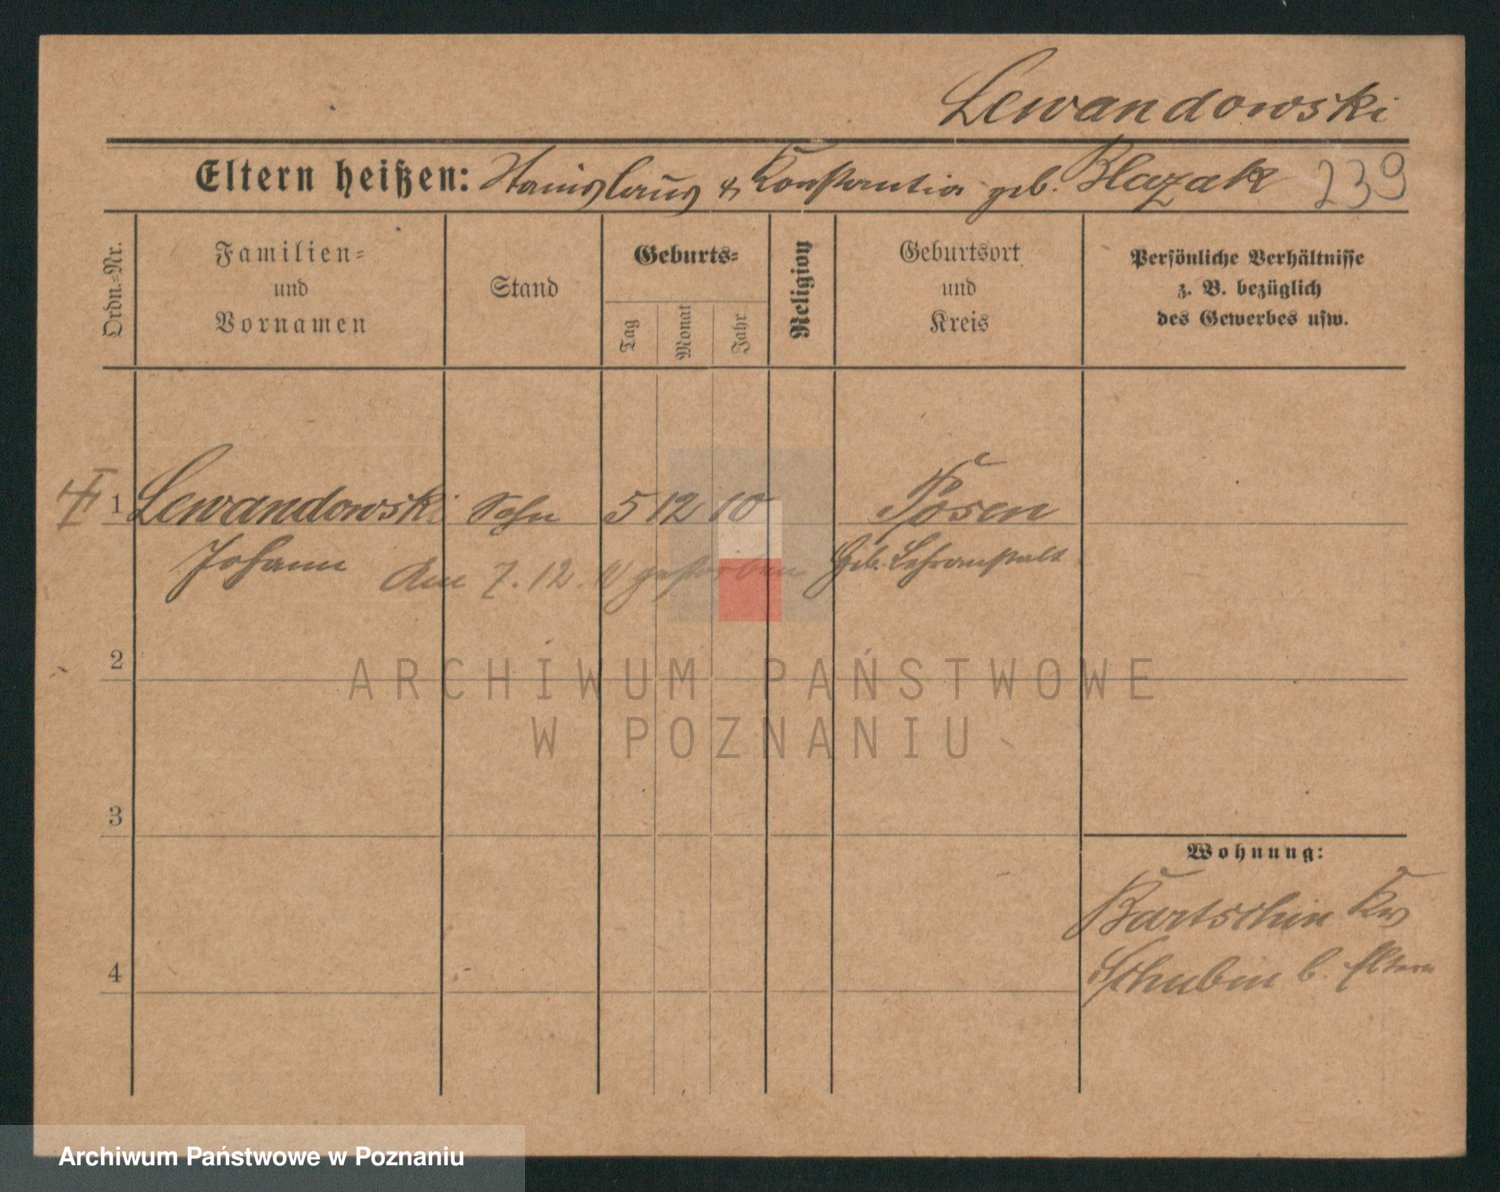 Lewandowski
Eltern heißen: Stanislaus & Konstantia geb. Blazak 239
Ordn.-Nr.
Familien- und Vornamen
Stand
Geburts-
Tag
Monat
Jahr
Religion
Geburtsort und Kreis
Persönliche Verhältnisse
z. B. bezüglich
des Gewerbes usw.
1 Lewandowski Sohn 5 12 10 Posen
Johann Am 7.12. gestorben Geb. Lehranstalt
2
ARCHIWUM PAŃSTWOWE
W POZNANIU
3
Wohnung:
Bartschin Kr
4
Schubin b. Eltern
Archiwum Państwowe w Poznaniu